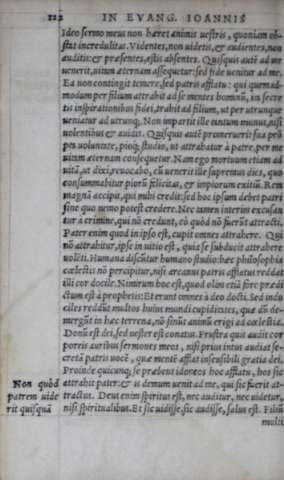 122 IN EVANG. IOANNIS
Ideo sermo meus non hæret animis uestris, quoniam ob-
stat incredulitas. Videntes, non uidetis, & audientes, non
auditis: & præsentes, estis absentes. Quisquis autē ad me
uenerit, uitam æternam assequetur: sed fide uenitur ad me.
Ea non contingit temere, sed patris afflatu: qui quemad-
modum per filium attrahit ad se mentes hominū, ita secre
tis inspirationibus fidei, trahit ad filium, ut per utrunque
ueniatur ad utrunq;. Non impartit ille tantum munus, nisi
uolentibus & auidis. Quisquis autē promeruerit sua prō
pta uoluntate, pioq́; studio, ut attrahatur à patre, per me
uitam æternam consequetur. Nam ego mortuum etiam ad
uitā, ut dixi, reuocabo, cū uenerit ille supremus dies, quo
consummabitur piorū felicitas, & impiorum exitiū. Rem
magnā accipit, qui mihi credit: sed hoc ipsum debet patri
sine quo nemo potest credere. Nec tamen interim excusan
tur à crimine, qui nō credunt, eò quòd nō fuerūt attracti.
Pater enim quod in ipso est, cupit omnes attrahere. Qui
nō attrahitur, ipse in uitio est, quia se subducit attrahere
uolēti. Humana discūtur humano studio: hæc philosophia
cœlestis nō percipitur, nisi arcanus patris afflatus reddat
illi cor docile. Nimirum hoc est, quod olim etiā fore prædi
ctum est à prophetis: Et erunt omnes à deo docti. Sed indo
ciles reddūt multos huius mundi cupiditates, quæ dū de-
mergūt in hæc terrena, nō sinūt animū erigi ad cœlestia.
Donū est dei, sed uester est conatus. Frustra quis audit cor
poreis auribus sermones meos, nisi prius intus audiat se-
cretā patris uocē, quæ mentē afflat insensibili gratia dei.
Proinde quicunq; se præbent idoneos hoc afflatu, hos sic
Non quòd attrahit pater: & is demum uenit ad me, qui sic fuerit at-
patrem uide tractus. Deus enim spiritus est, nec auditur, nec uidetur,
rit quisquā nisi spiritualibus. Et sic uidisse, sic audisse, salus est. Filiū
multi